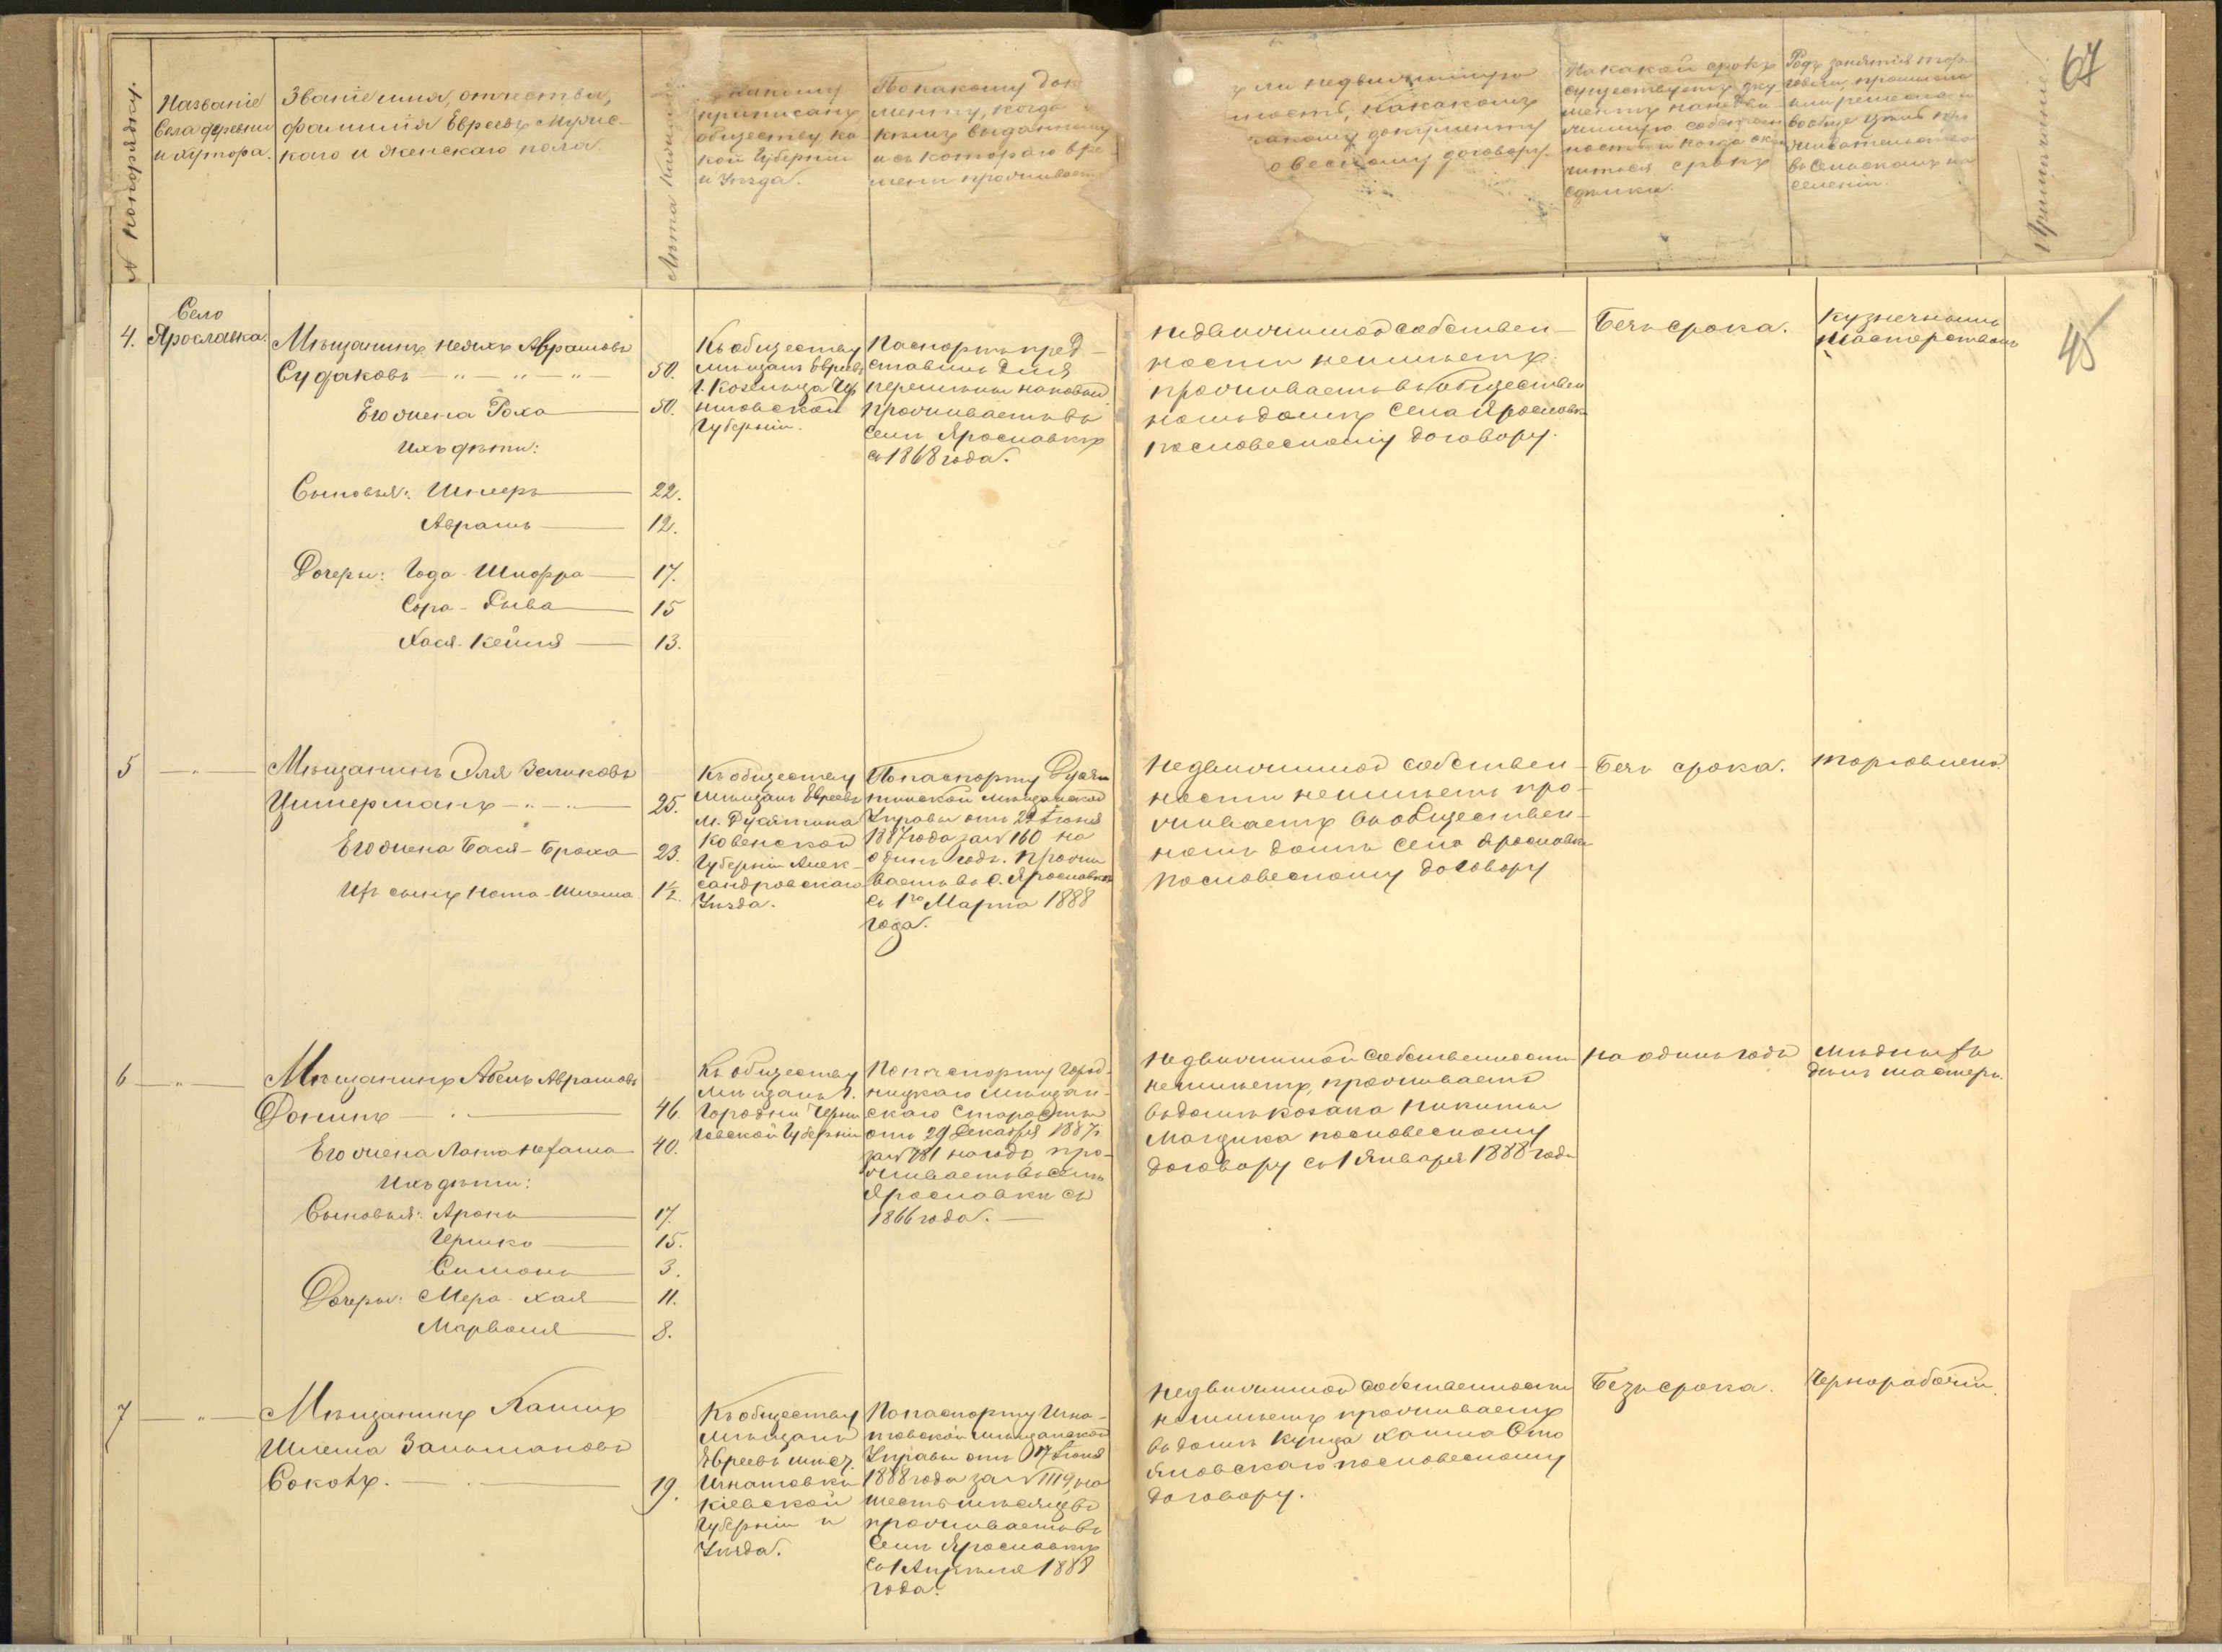 67
№ по порядку.
Названіе
Села деревни
и хутора.
Званіе имя, отчество,
фамилія Евреевъ мужс-
каго и женскаго пола.
Лѣта
приписанъ
обществу ка-
кой Губерніи
и Уѣзда.
По какому док
менту, когда и
кѣмъ выданному
и съ котораго вре
мени проживаетъ
ли недвижимую
ность, по какому
документу
словесному договору.
На какой срокъ
существуетъ доку
ментъ на недви
жимую собствен
ность и когда окон
читься срокъ
сдѣлки.
Родъ занятія тор
говля, промысла
или ремесла и
вообще
жительство
въ Сельскомъ на
селеніи.
Примѣчаніе.
45
4.
Село
Ярославка.
Мѣщанинъ Аврамовъ
Судаковъ — " — " — " 50.
Его жена Роха — 50.
Ихъ дѣти:
Сыновья: Шмеръ — 22.
Аврамъ — 12.
Дочери: Года-Шифра — 17.
Сора-Рыва — 15
Хася-Кейля — 13.
Къ обществу
мѣщанъ Евреевъ
г. Козельца Чер
ниговской
Губерніи.
Паспортъ пред-
ставилъ для
перемѣны на новый
проживаетъ въ
селѣ Ярославкѣ
съ 1868 года.
недвижимой собствен-
ности неимѣетъ
проживаетъ въ обществен
номъ домѣ села Ярославки
пословесному договору.
Безъ срока.
Кузнечнымъ
мастерствомъ
5 — " —
Мѣщанинъ Эля Зеликовъ
Цимерманъ — " — " — 25.
Его жена Бася-Броха 23.
Ихъ сынъ Нота-Шлема 1½.
Къ обществу
мѣщанъ Евреевъ
м. Дусятина
Ковенской
Губерніи Алек-
сандровскаго
Уѣзда.
По паспорту Дуся
тинской мѣщанской
Управы отъ 29 Іюня
1887 года за № 160 на
одинъ годъ. Прожи
ваетъ въ с. Ярославкѣ
съ 1го Марта 1888
года.
Недвижимой собствен-
ности неимѣетъ про-
живаетъ въ обществен-
номъ домѣ села Ярославки
пословесному договору
Безъ срока.
торговлею.
6 — " —
Мѣщанинъ Абель Аврамовъ
Донинъ — " — 46.
Его жена Лата Нехама 40.
Ихъ дѣти:
Сыновья: Аронъ — 17.
Гершко — 15.
Симонъ — 3.
Дочери: Мера-Хая — 11.
Марваля — 8.
Къ обществу
мѣщанъ г.
Городни Черни
говской Губерніи
По паспорту Город-
ницкаго мѣщан-
скаго Старосты
отъ 29 Декабря 1887 г.
за № 781 на годъ про-
живаетъ въ селѣ
Ярославки съ
1866 года. —
Недвижимой собственности
неимѣетъ, проживаетъ
въ домѣ козака Никиты
Магдика пословесному
договору съ 1 Января 1888 года
на одинъ годъ
мѣдныхъ
дѣлъ мастеръ.
7 — " —
Мѣщанинъ
Шлема Зальмановъ
Соколъ. — 19.
Къ обществу
мѣщанъ
Евреевъ мѣст.
Игнатовки
Кіевской
Губерніи и
Уѣзда.
По паспорту Игна-
товской мѣщанской
Управы отъ 17 Іюня
1888 года за № 1119, на
шесть мѣсяцевъ
проживаетъ въ
селѣ Ярославкѣ
съ 1 Апрѣля 1888
года.
Недвижимой собственности
неимѣетъ проживаетъ
въ домѣ купца Хаима Сто
яновскаго пословесному
договору.
Безъ срока.
Чернорабочій.